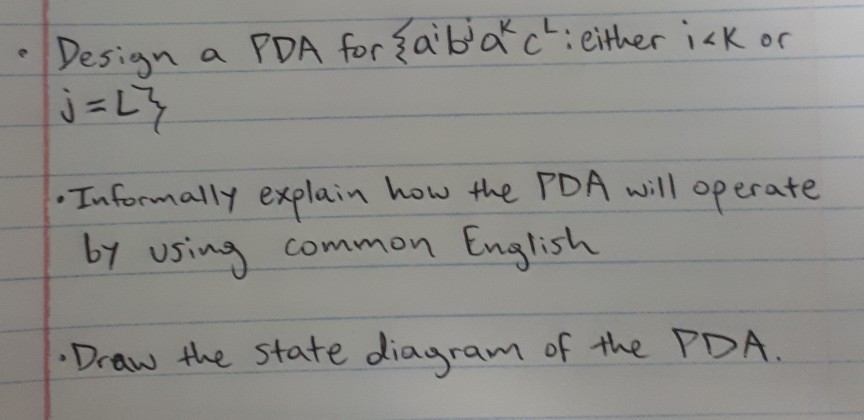 • Design a PDA for {aⁱbʲaᵏcᴸ : either i<K or
j = L}
• Informally explain how the PDA will operate
by using common English
• Draw the state diagram of the PDA.